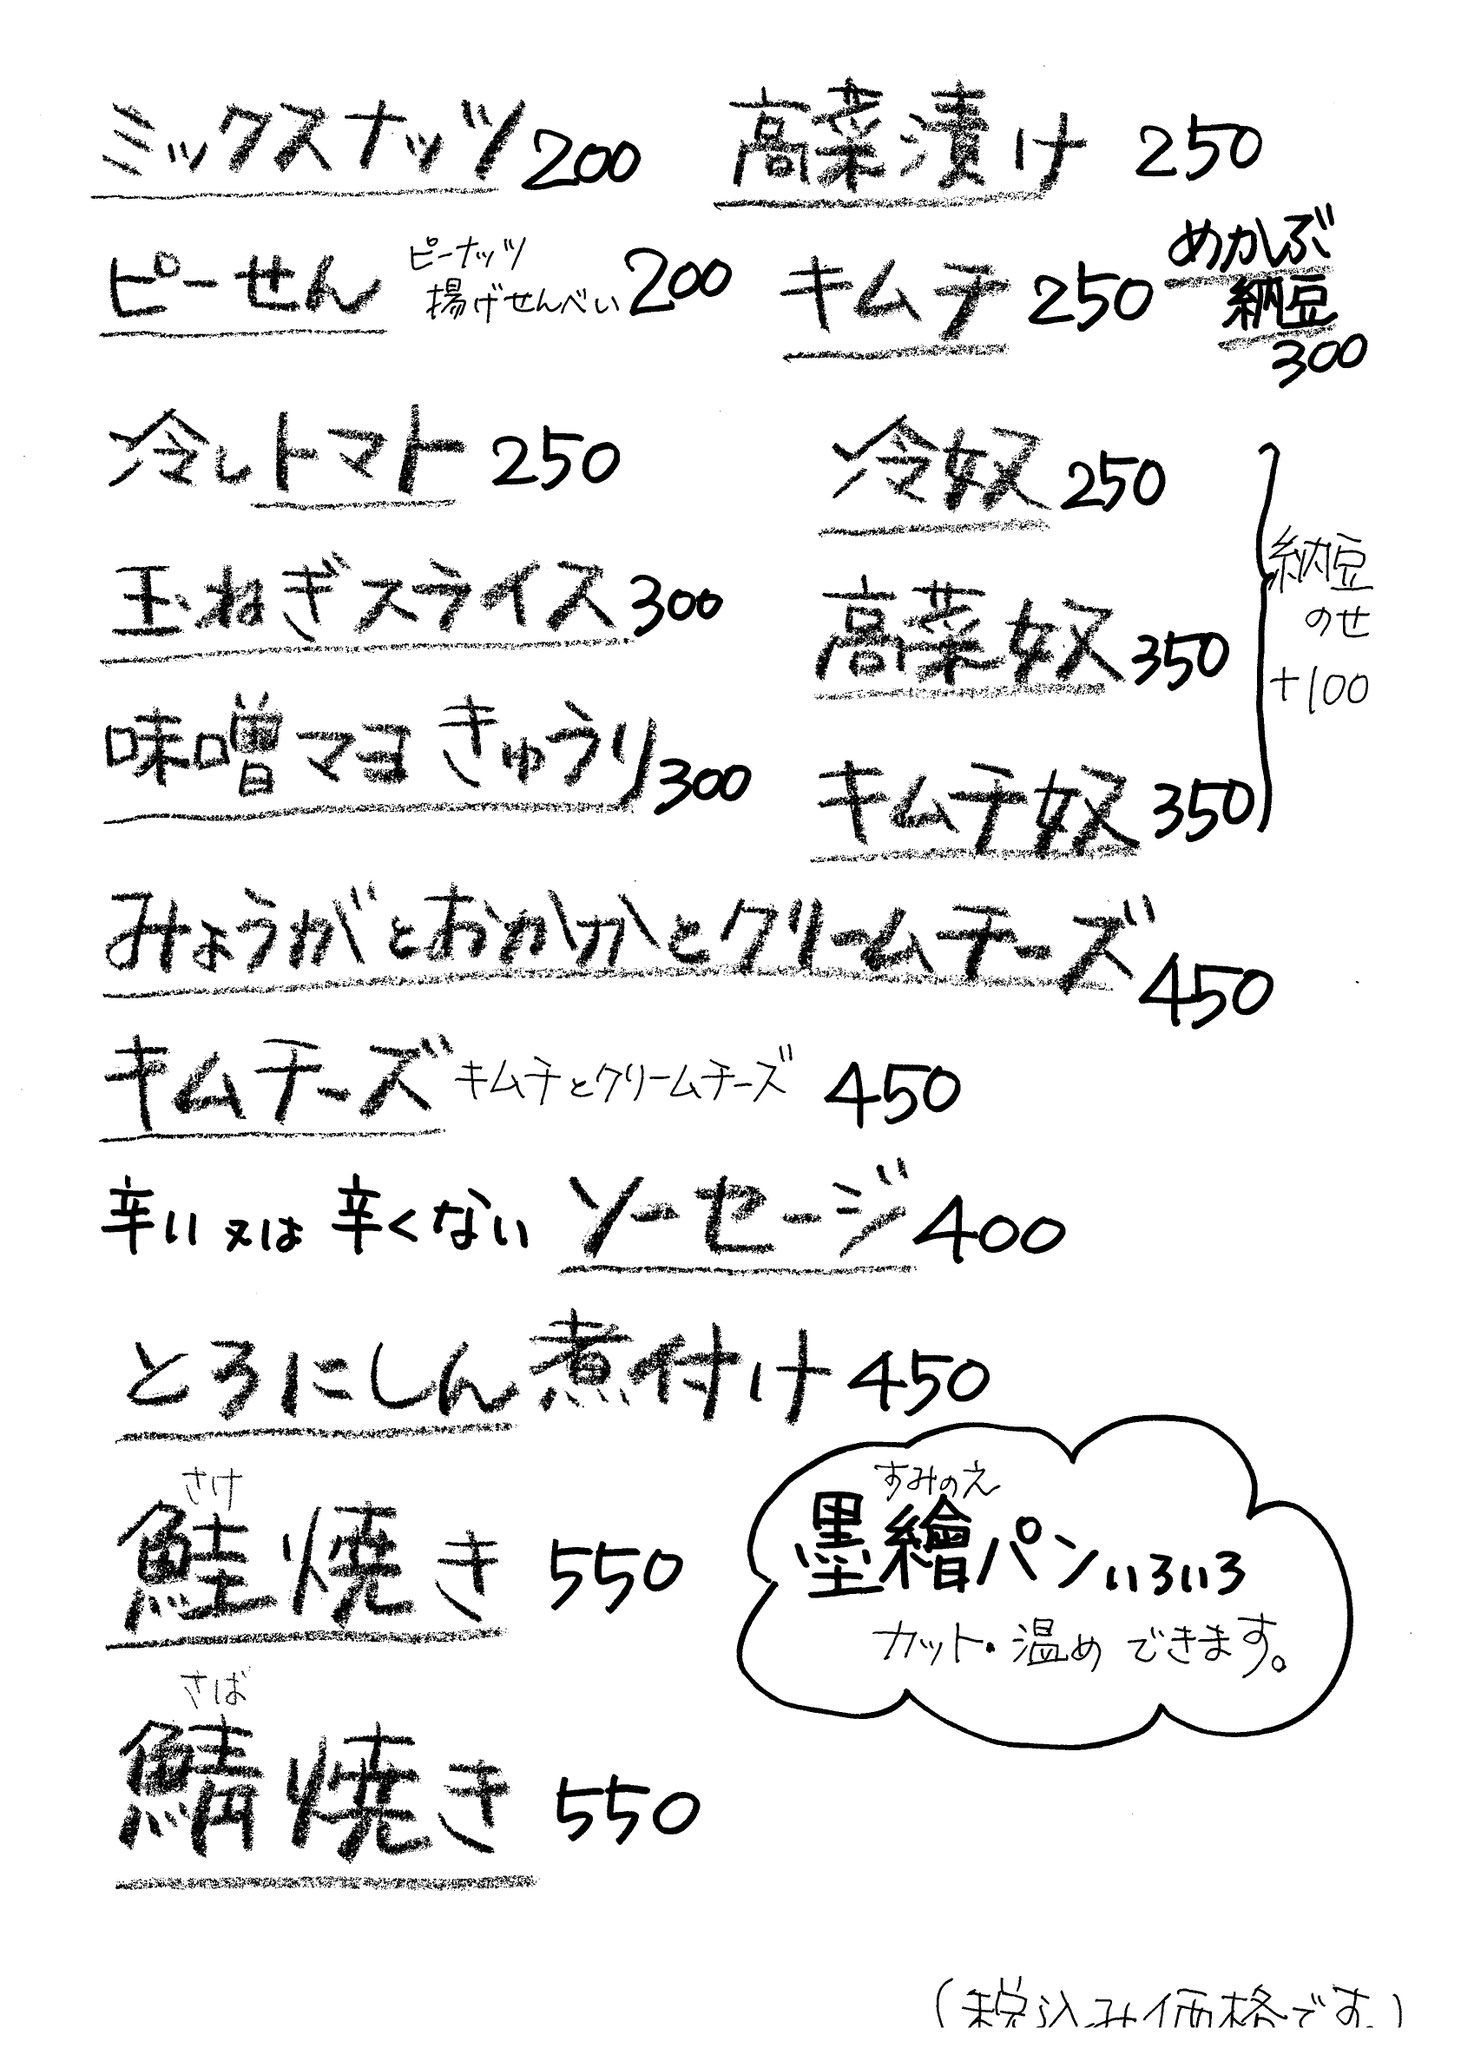 ミックスナッツ 200
高菜漬け 250
ピーせん ピーナッツ 揚げせんべい 200
キムチ 250
めかぶ
納豆
300
冷しトマト 250
冷奴 250
玉ねぎスライス 300
高菜奴 350
味噌マヨきゅうり 300
キムチ奴 350
納豆
のせ
+100
みょうがとおかかとクリームチーズ 450
キムチーズ キムチとクリームチーズ 450
辛い又は辛くない ソーセージ 400
とろにしん煮付け 450
さけ
鮭焼き 550
さば
鯖焼き 550
すみのえ
墨繪パンいろいろ
カット・温めできます。
(税込み価格です。)